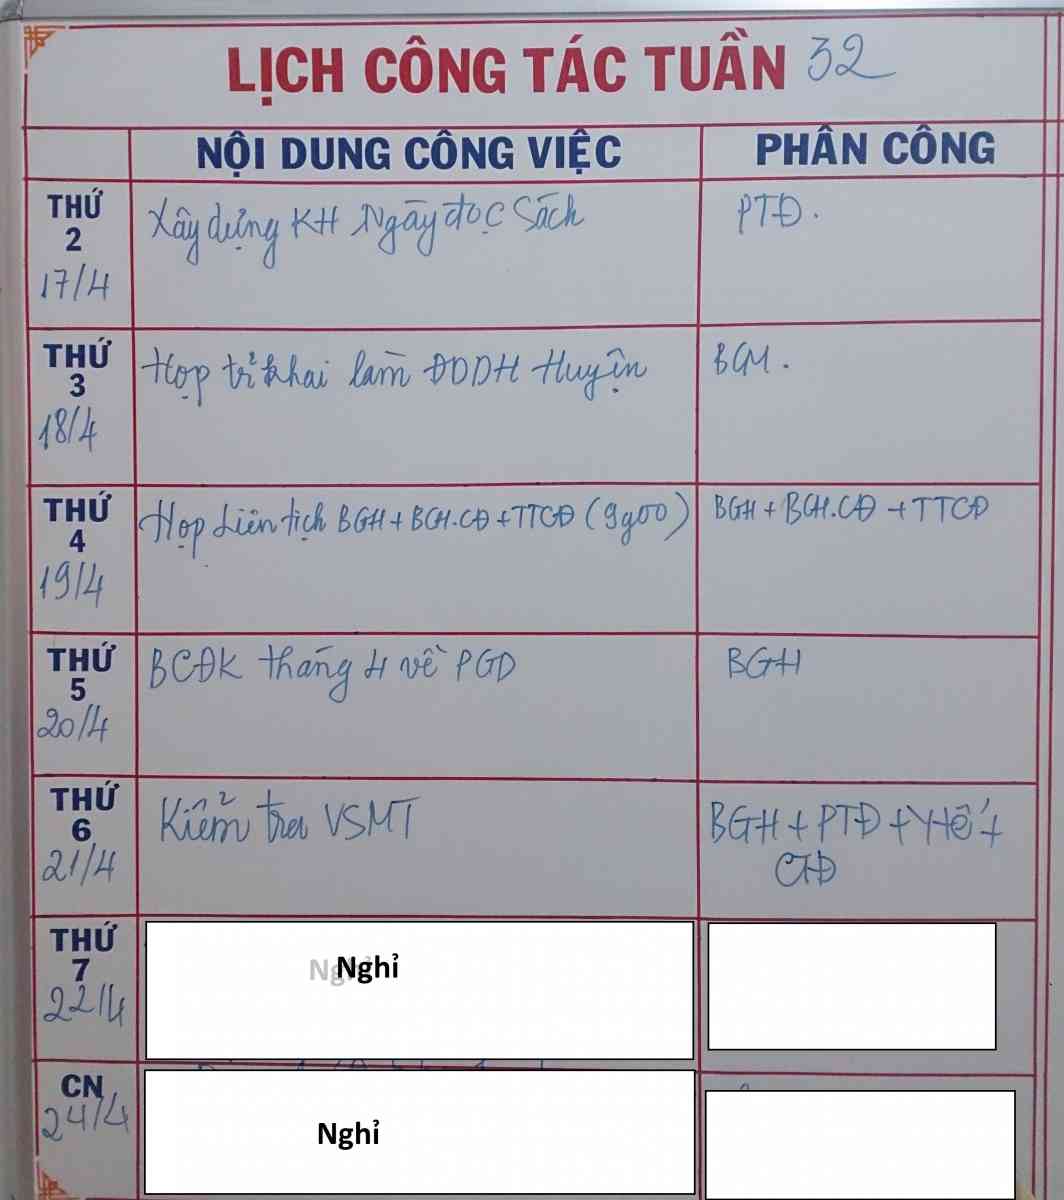 LỊCH CÔNG TÁC TUẦN 32
NỘI DUNG CÔNG VIỆC PHÂN CÔNG
THỨ 2 17/4 Xây dựng KH Ngày đọc Sách PTĐ.
THỨ 3 18/4 Họp tr khai làm ĐDDH Huyện BGH.
THỨ 4 19/4 Họp Liên tịch BGH + BCH.CĐ + TTCĐ (9g00) BGH + BCH.CĐ + TTCĐ
THỨ 5 20/4 BCĐK tháng 4 về PGD BGH
THỨ 6 21/4 Kiểm tra VSMT BGH + PTĐ + Y tế +
CTĐ
THỨ 7 22/4 Nghỉ
CN 24/4 Nghỉ